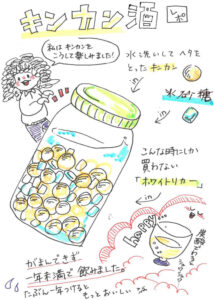 キンカン酒 レポ
私はキンカンを
こうして楽しみました!
水洗いして ヘタを
とった キンカン
氷砂糖
in
こんな時にしか
買わない
「ホワイトリカー」
in
がまんできず
一年未満で飲みました。
たぶん一年つけると
もっとおいしい